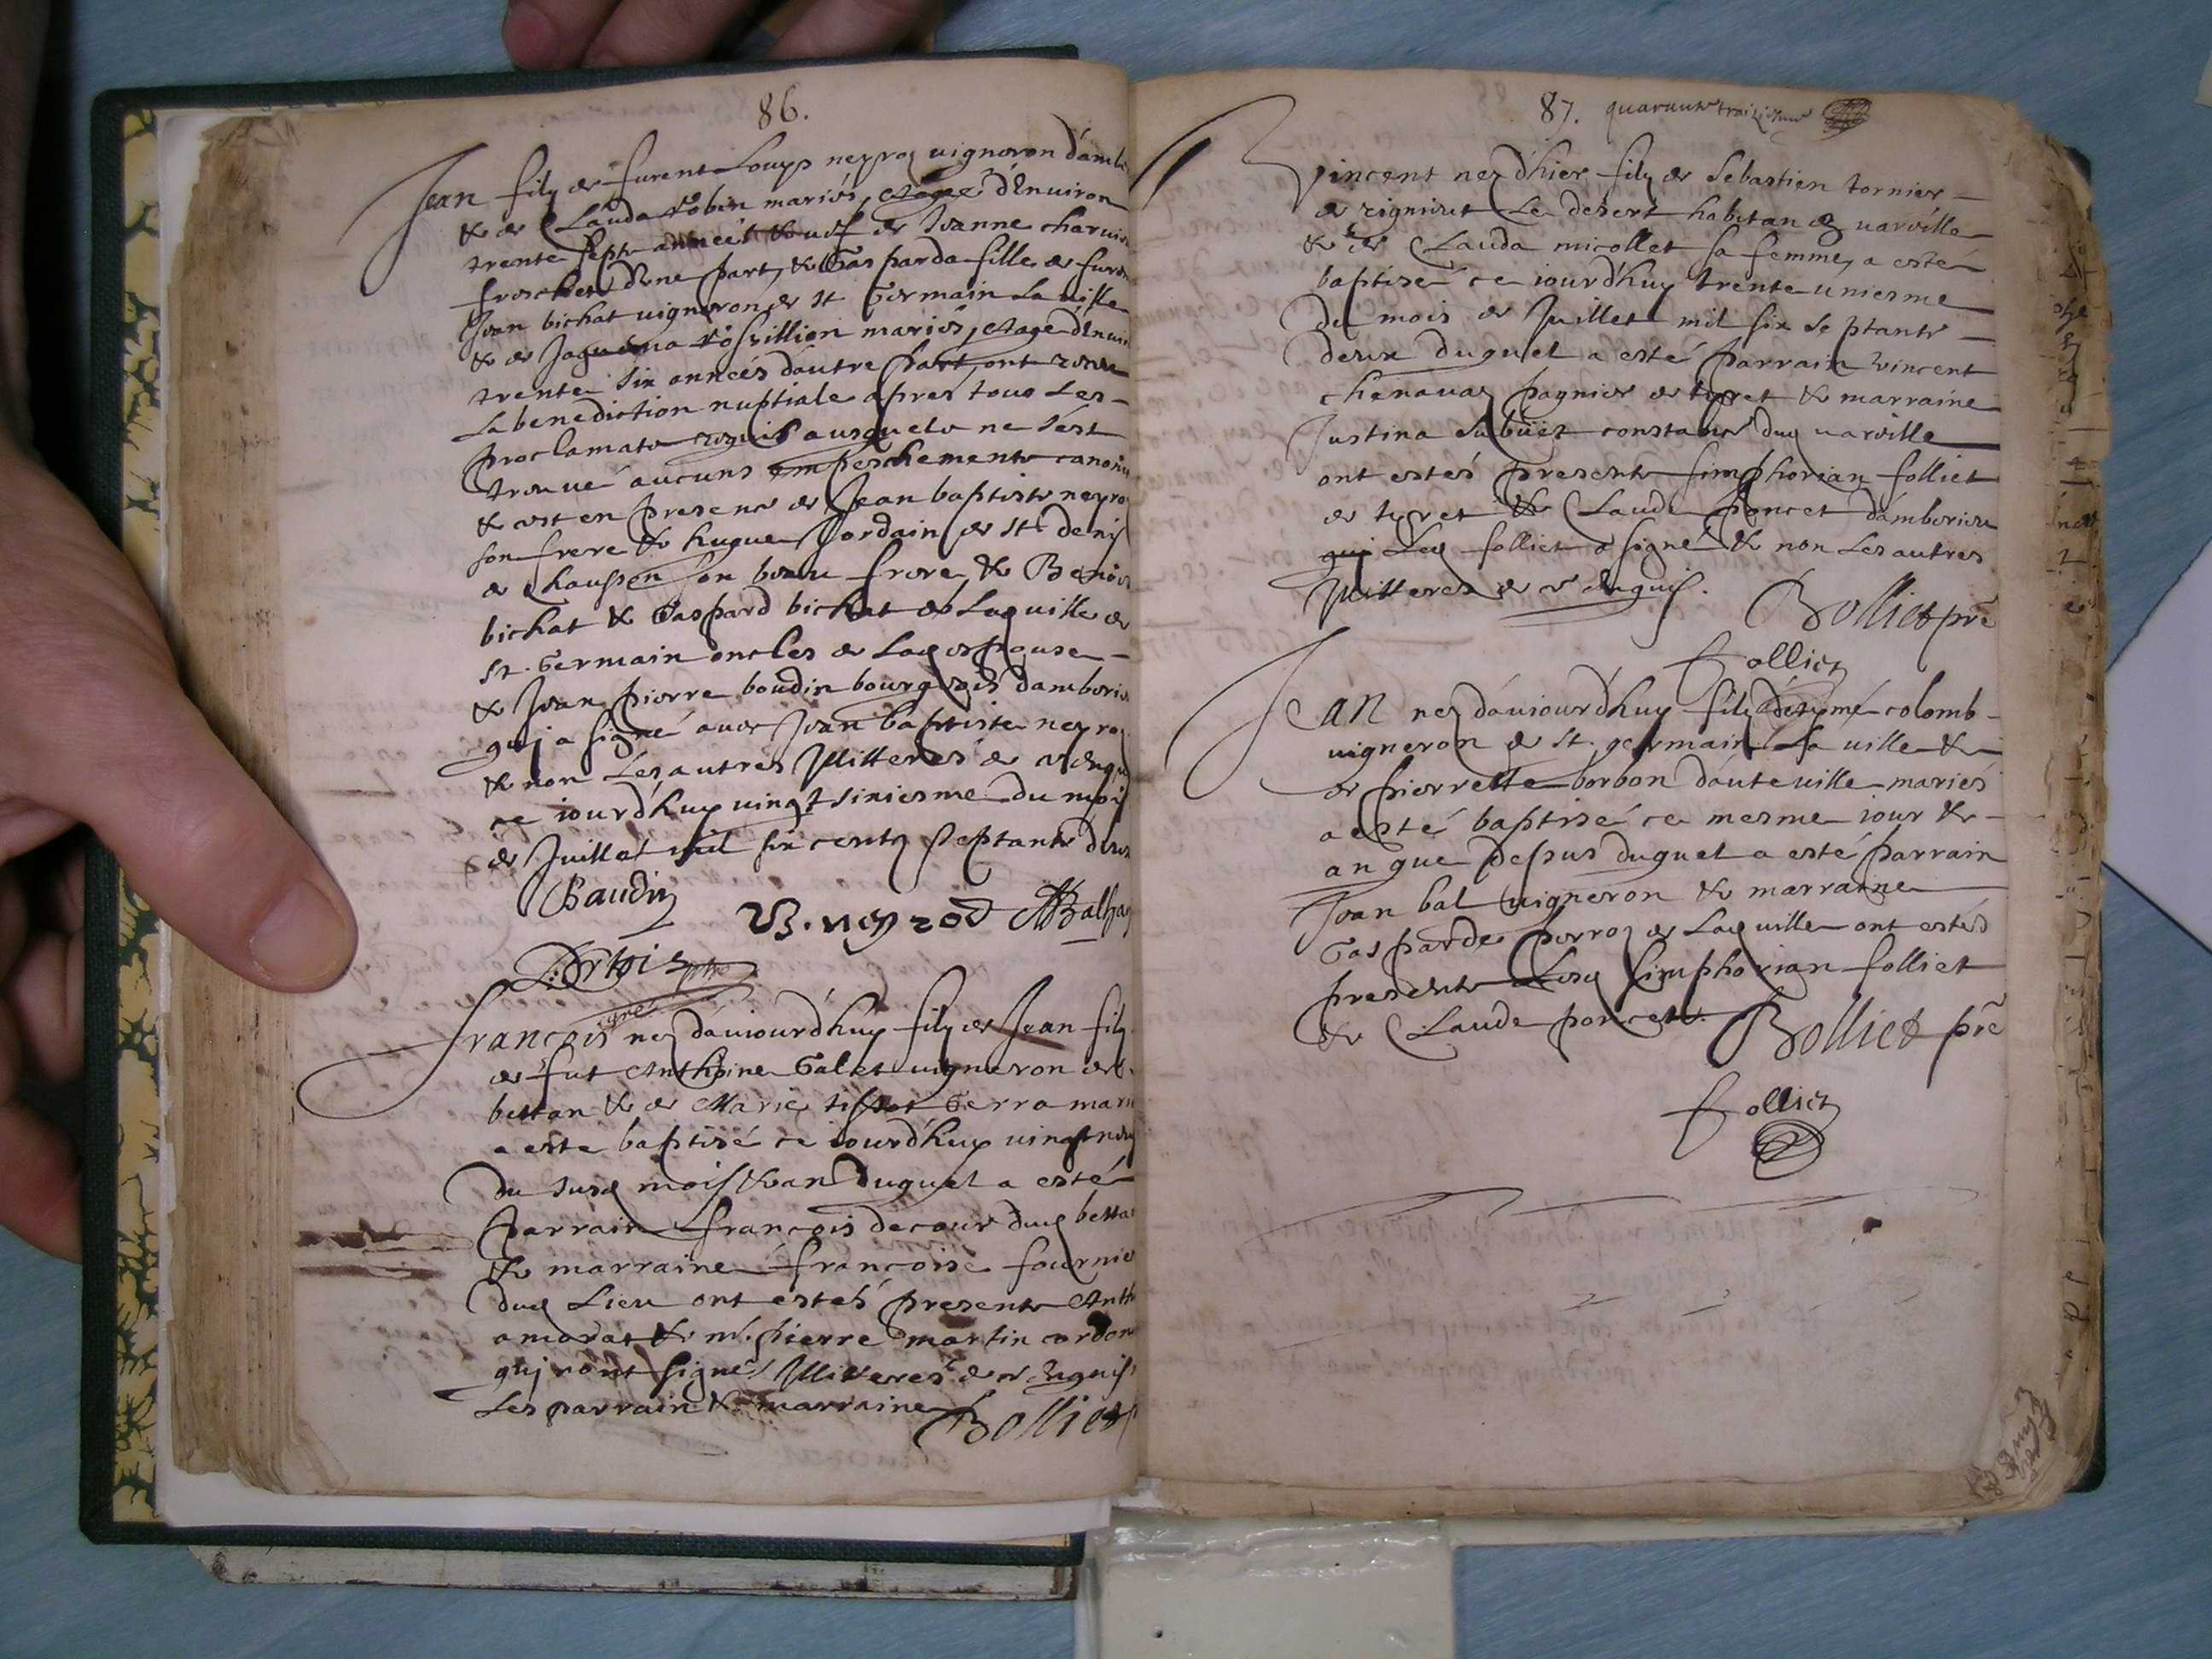 86.
Jean filz de furent Louys neyroz vigneron damb
& de Clauda robin mariés, et age d'Enuiron
trente sept années & veuf de Jeanne charuin
d'une part, & Gasparda fille de furent
Jean bichat vigneron de st Germain la ville
& de Jaquema mariés, et age d'Enuir
trente six annees d'autre part, ont receu
La benediction nuptiale apres tous Les
proclamats requis ausquels ne s'est
trouué aucuns empeschements canoni
& c'est en presence de Jean baptiste neyro
son frere & hugue Jordain de st denis
de Chausson son beau frere & Benoi
bichat & Gaspard bichat de Lad ville de
st. Germain oncles de Lad espouse
& Jean pierre boudin bourgeois d'amberie
qui a signé auec Jean baptiste neyro
& non Les autres Illitteres de ce Enqui
ce iourd'huy vingt sixiesme du mois
de Juillet mil six cents septante deux
Baudin
B. neyrod
Dertois ptre
francois nez d'auiourd'huy filz de Jean filz
de fut Anthoine Galet vigneron de
bettan & de Marie tissot Gerra mari
a este baptisé ce iourd'huy vingt neu
du susd mois & an duquel a esté
parrain françois decour dud bettan
& marraine françoise fournie
dud Lieu ont estés presents Anth
amaras & m. pierre martin cordon
qui n'ont signés Illiteres de ce Enquis
Les parrain & marraine
Bolliet p
87. quarante traiziesme
Vincent nez d'hier filz de Sebastien tornier
de rignieut Le desert habitan de varville
& de Clauda micollet sa femme, a esté
baptisé ce iourd'huy trente uniesme
du mois de Juillet mil six septante
deux duquel a esté parrain vincent
chenauaz pagnier de tiret & marraine
Justina constance dud varville
ont estés presents simphorian folliet
de tiret & Claude poncet d'amberieu
qui Led folliet a signé & non Les autres
Illitteres de ce Enquis.
Bolliet pre
folliet
Jean nez d'auiourd'huy filz d'etiemé colomb
vigneron de st. germain La ville &
de pierrette borbon d'auteville mariés
a esté baptisé ce mesme iour &
an que dessus duquel a esté parrain
Jean bal vigneron & marraine
Gasparde perroz de Lad ville ont estés
presents Lesd simphorian folliet
& Claude poncet.
Bolliet pre
folliet